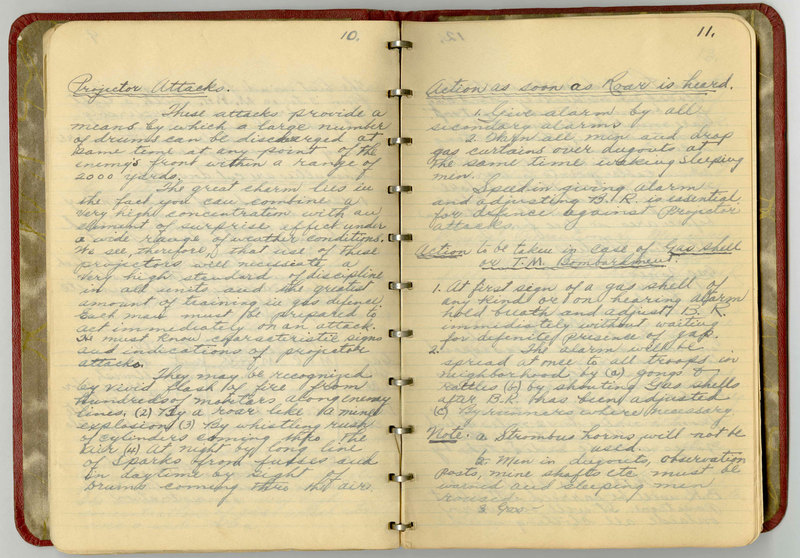 10.
Projector Attacks.
These attacks provide a
means by which a large number
of drums can be discharged at
same time at any point of the
enemy's front within a range of
2000 yards.
The great charm lies in
the fact you can combine a
very high concentration with an
element of surprise affect under
a wide range of weather conditions.
We see, therefore, that use of these
projectors will necessiate a
very high standard of discipline
in all units and the greatest
amount of training in gas defence.
Each man must be prepared to
act immediately on an attack.
He must know characteristic signs
and indications of projector
attacks.
They may be recognized
by vivid flash of fire from
hundreds of mortars along enemy
lines. (2) By a roar like a mine
explosion (3) By whistling rush
of cylinders coming thro the
air (4) At night by long line
of sparks from fusses and
in daytime by sight of
drums coming thro the air.
11.
Action as soon as Roar is heard.
1. Give alarm by all
secondary alarms
2. Chfull all men and drop
gas curtains over dugouts at
the same time waking sleeping
men.
Speed in giving alarm
and adjusting B.R. is essential
for defence against Projector
attacks.
Action to be taken in case of Gas shell
or T.M. Bombardment.
1. At first sign of a gas shell of
any kind or on hearing alarm
hold breath and adjust B.R.
immediately without waiting
for definite presence of gas.
2. The alarm will be
spread at once to all troops in
neighborhood by (a) gongs &
rattles (b) by shouting Gas shells
after B.R. has been adjusted
(c) By runners where necessary.
Note: a Strombus horns will not be
used.
b. Men in dugouts, observation
posts, mine shafts etc must be
warned and sleeping men
roused.
3 Gas -